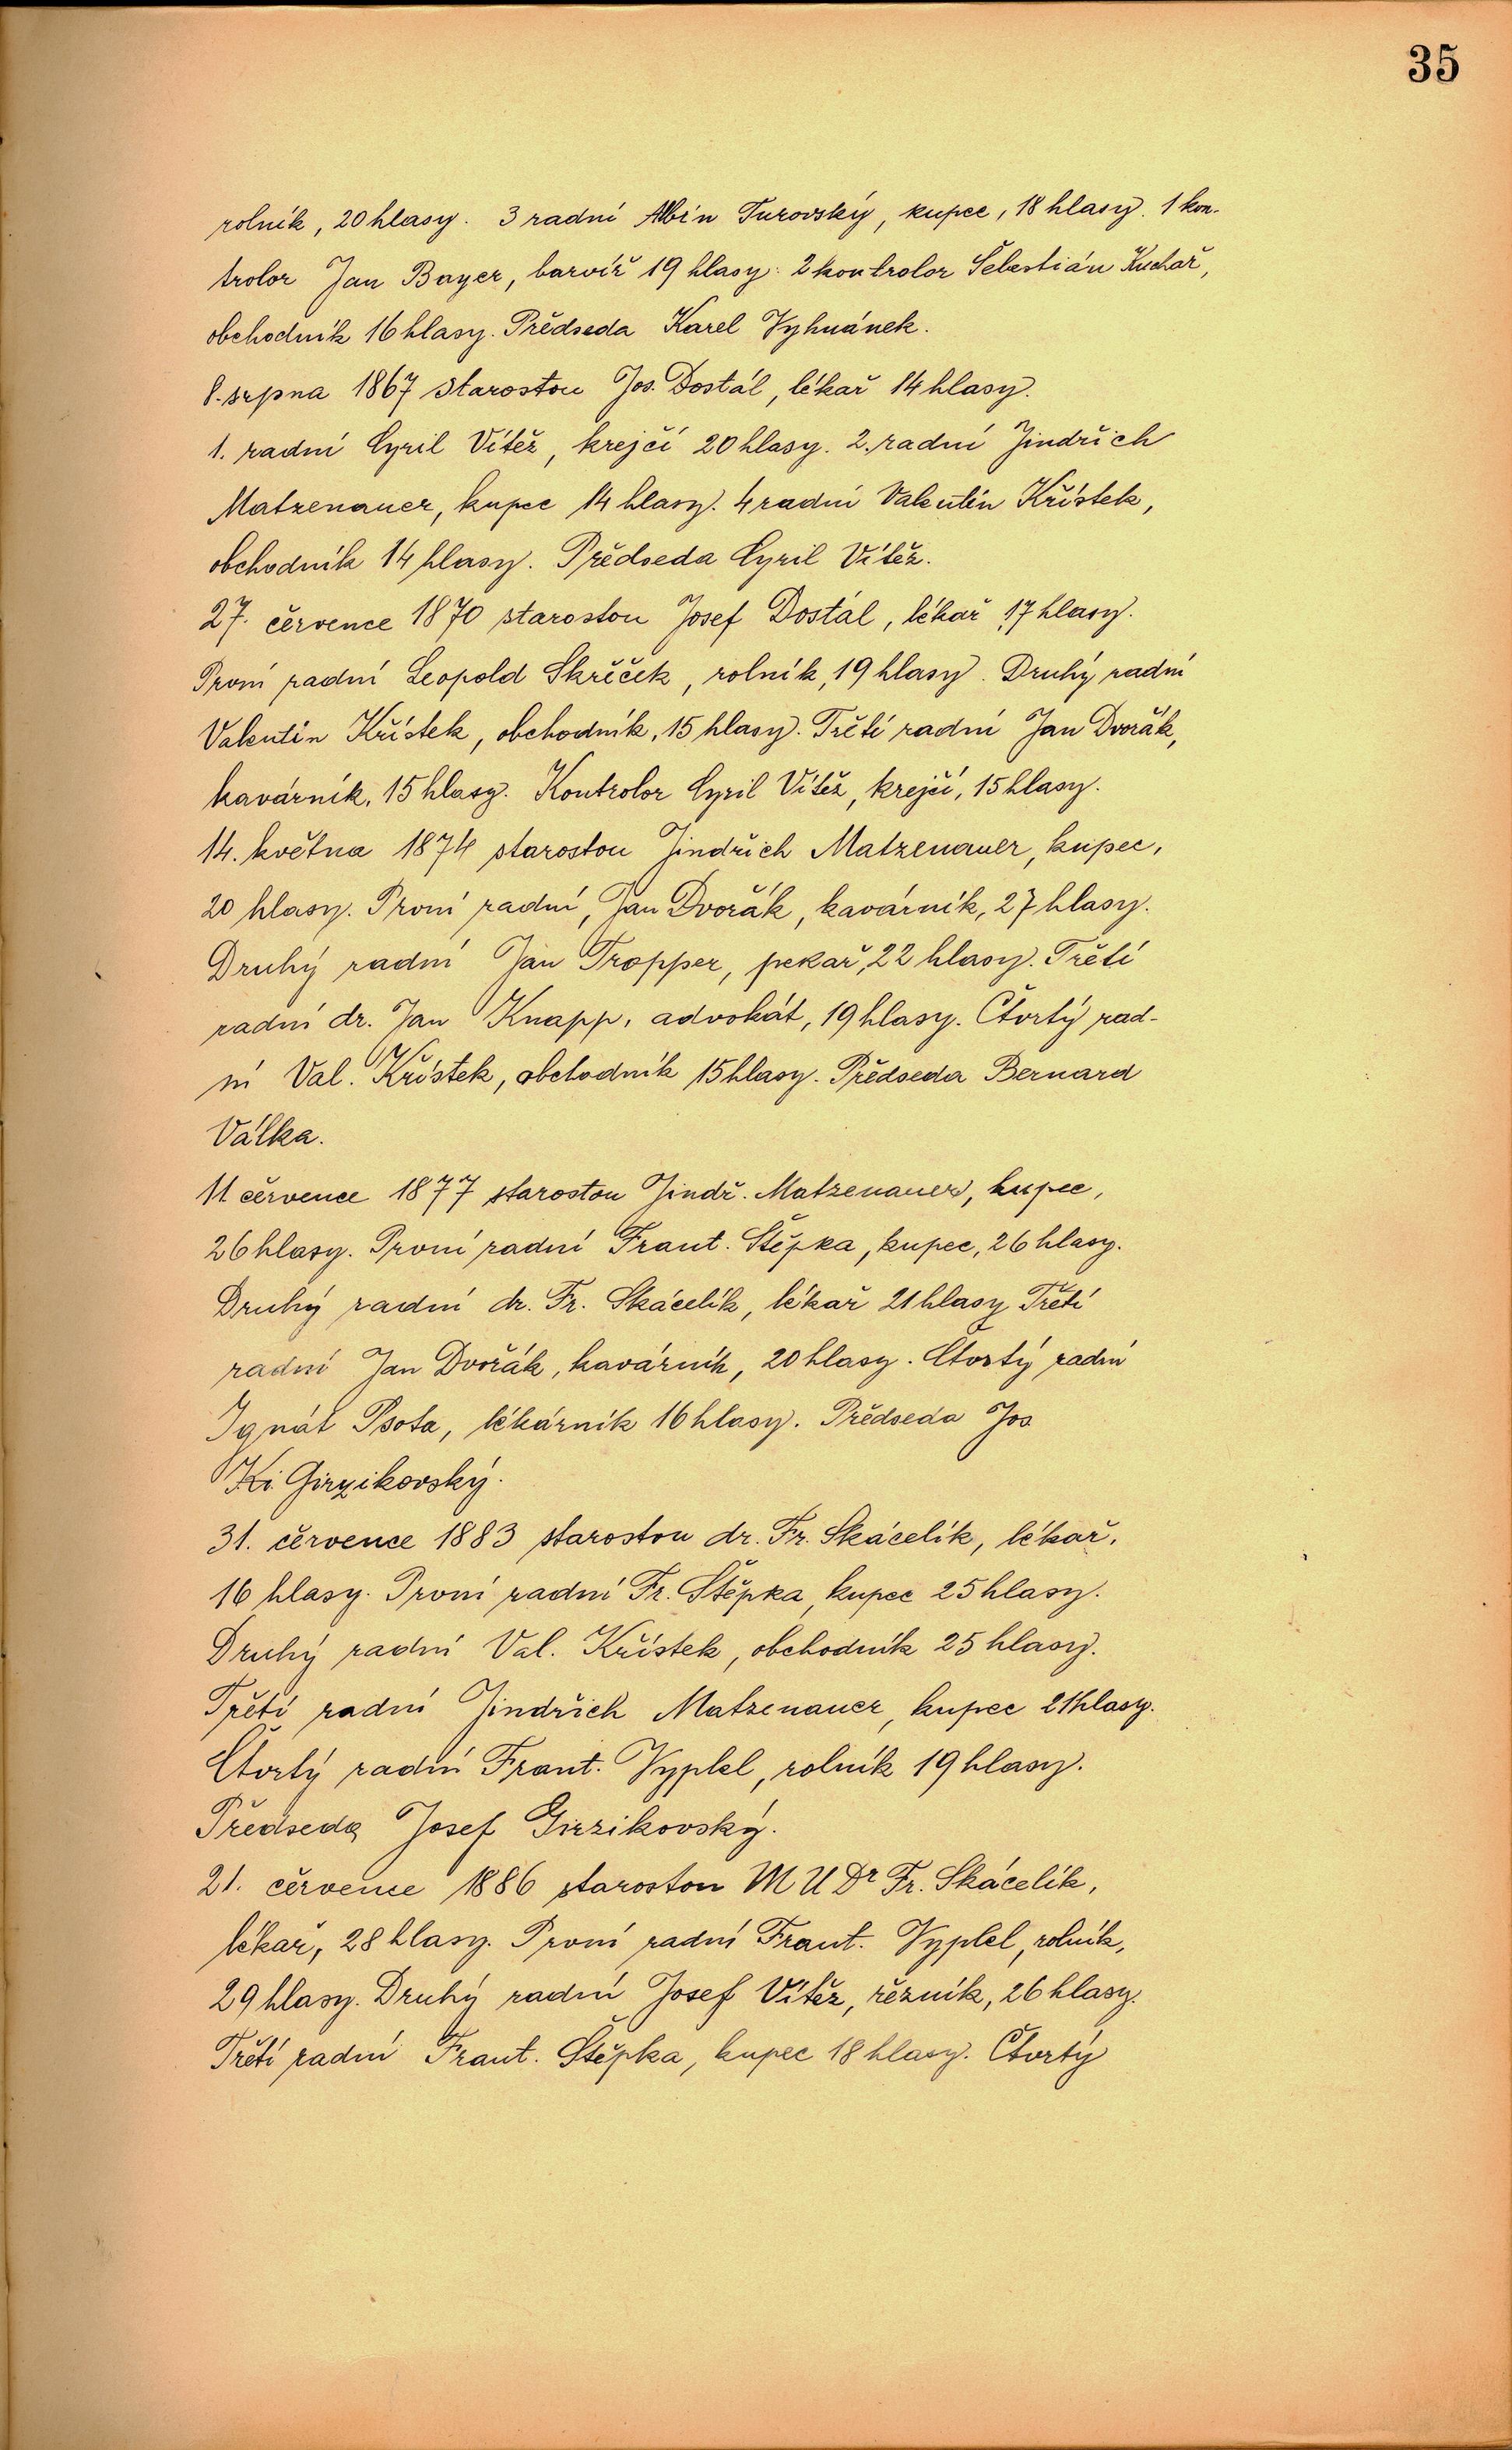 35
rolník, 20 hlasy. 3 radní Albín Turovský, kupec, 18 hlasy. 1 kon-
trolor Jan Bayer, barvíř 19 hlasy. 2 kontrolor Šebestián Kuchař,
obchodník 16 hlasy. Předseda Karel Vyhnánek.
8. srpna 1867 starostou Jos. Dostál, lékař 14 hlasy.
1. radní Cyril Vítěz, krejčí 20 hlasy. 2. radní Jindřich
Matzenauer, kupec 14 hlasy. 4 radní Valentin Křístek,
obchodník 14 hlasy. Předseda Cyril Vítěz.
27. července 1870 starostou Josef Dostál, lékař 17 hlasy.
První radní Leopold Skřeček, rolník, 19 hlasy. Druhý radní
Valentin Křístek, obchodník, 15 hlasy. Třetí radní Jan Dvořák,
kavárník, 15 hlasy. Kontrolor Cyril Vítěz, krejčí, 15 hlasy.
14. května 1874 starostou Jindřich Matzenauer, kupec,
20 hlasy. První radní, Jan Dvořák, kavárník, 27 hlasy.
Druhý radní Jan Tropper, pekař, 22 hlasy. Třetí
radní dr. Jan Knapp, advokát, 19 hlasy. Čtvrtý rad-
ní Val. Křístek, obchodník 15 hlasy. Předseda Bernard
Válka.
11 července 1877 starostou Jindř. Matzenauer, kupec,
26 hlasy. První radní Frant. Štěpka, kupec, 26 hlasy.
Druhý radní dr. Fr. Skácelík, lékař 21 hlasy Třetí
radní Jan Dvořák, kavárník, 20 hlasy. Čtvrtý radní
Ignát Psota, lékárník 16 hlasy. Předseda Jos
Girzikovský.
31. července 1883 starostou dr. Fr. Skácelík, lékař,
16 hlasy. První radní Fr. Štěpka, kupec 25 hlasy.
Druhý radní Val. Křístek, obchodník 25 hlasy.
Třetí radní Jindřich Matzenauer, kupec 21 hlasy.
Čtvrtý radní Frant. Vyplel, rolník 19 hlasy.
Předseda Josef Girzikovský.
21. července 1886 starostou MUDr Fr. Skácelík,
lékař, 28 hlasy. První radní Frant. Vyplel, rolník,
29 hlasy. Druhý radní Josef Vítěz, řězník, 26 hlasy.
Třetí radní Frant. Štěpka, kupec 18 hlasy. Čtvrtý